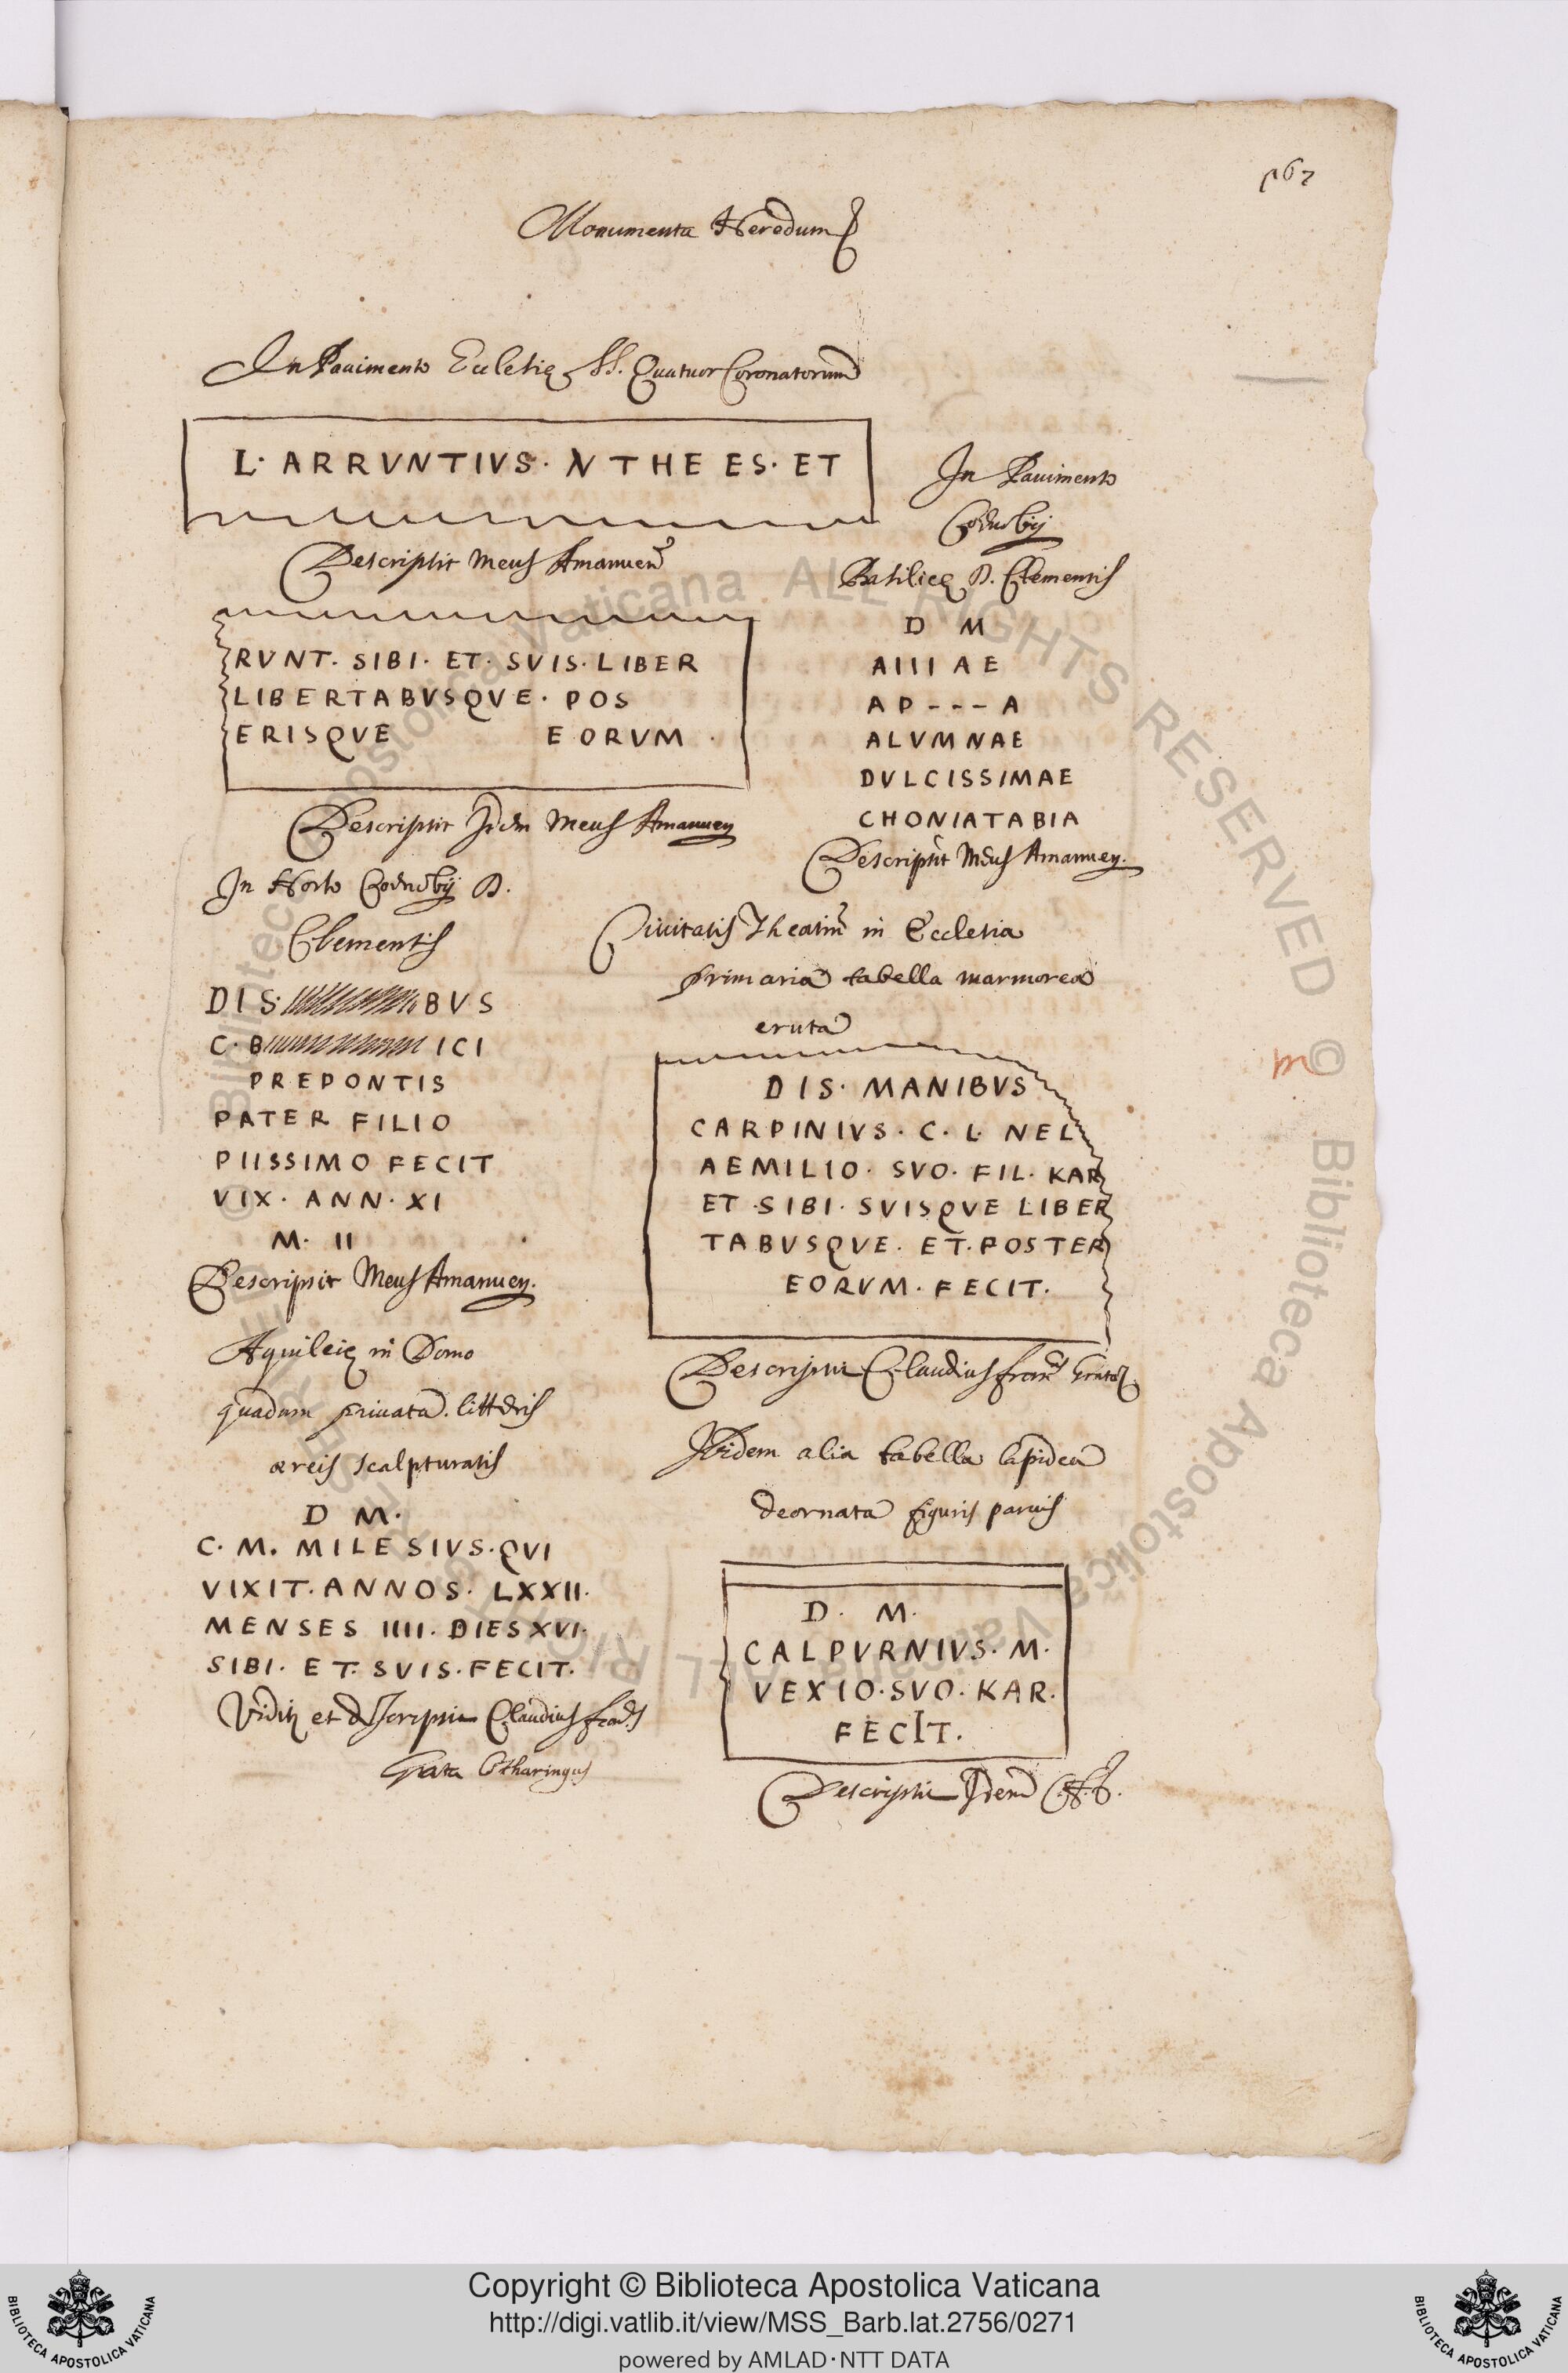 Monumenta Heredum
In Pauimento Ecclesię SS. Quatuor Coronatorum
L. ARRVNTIVS. NTHE ES. ET
Descripsit Meus Amanuen
RVNT. SIBI. ET. SVIS. LIBER
LIBERTABVSQVE. POS
ERISQVE EORVM.
Descripsit Idem Meus Amanuen
In Pauimento
Coenobij
Basilicę D. Clementis
D M
AIIIAE
AP---A
ALVMNAE
DVLCISSIMAE
CHONIATABIA
Descripsit Meus Amanuen.
In Horto Coenobij D.
Clementis
DIS. BVS
C. B ICI
PREPONTIS
PATER FILIO
PIISSIMO FECIT
VIX. ANN. XI
M. II
Descripsit Meus Amanuen.
Ciuitatis Theatin in Ecclesia
primaria tabella marmorea
eruta
DIS. MANIBVS
CARPINIVS. C. L. NEL
AEMILIO. SVO. FIL. KAR
ET. SIBI. SVISQVE LIBER
TABVSQVE. ET. POSTER
EORVM. FECIT.
Descripsit Claudius
Aquileię in Domo
quadam priuata. litteris
æreis scalpturatis
D M.
C. M. MILESIVS. QVI
VIXIT. ANNOS. LXXII.
MENSES IIII. DIES XVI.
SIBI. ET. SVIS. FECIT.
Vidit et descripsit Claudius
Lotharingus
Ibidem alia tabella lapidea
deornata figuris paruis
D. M.
CALPVRNIVS. M.
VEXIO. SVO. KAR.
FECIT.
Descripsit Idem
© Biblioteca Apostolica Vaticana ALL RIGHTS RESERVED
© Biblioteca Apostolica Vaticana ALL RIGHTS RESERVED
BIBLIOTECA APOSTOLICA VATICANA
Copyright © Biblioteca Apostolica Vaticana
http://digi.vatlib.it/view/MSS_Barb.lat.2756/0271
powered by AMLAD·NTT DATA
BIBLIOTECA APOSTOLICA VATICANA